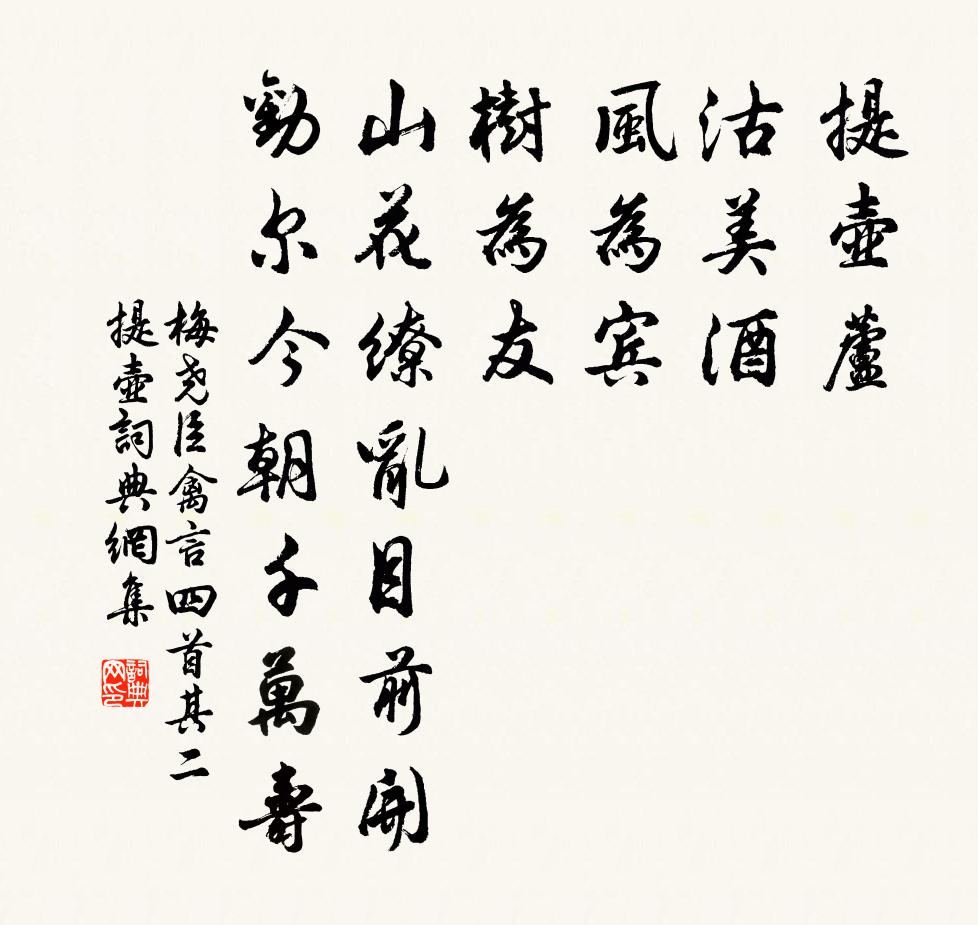 提壺蘆
沽美酒
風為賓
樹為友
山花繚亂目前開
勸尔今朝千萬壽
梅尧臣禽言四首其二
提壺詞典網集
詞典网印